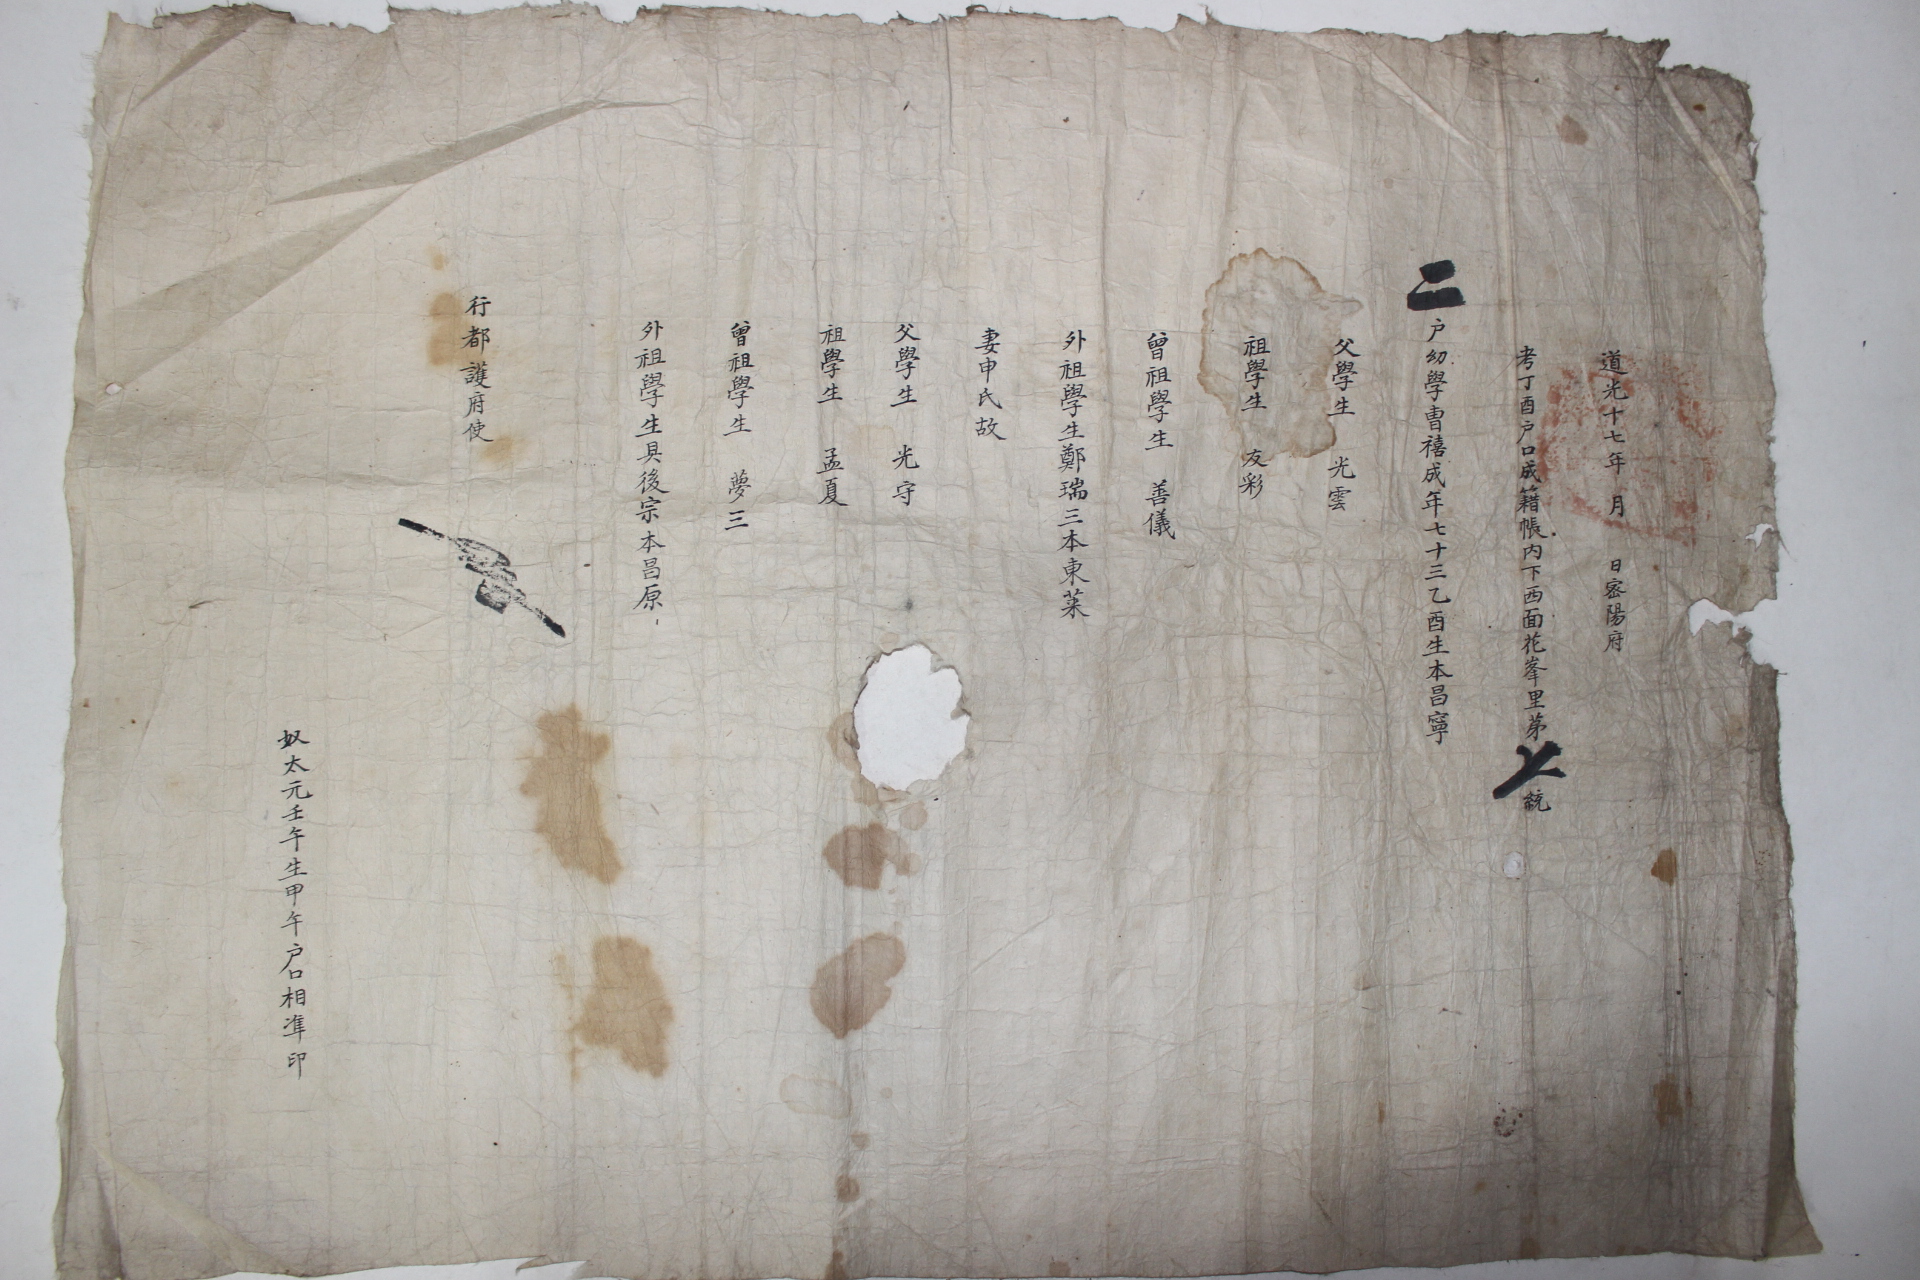 道光十七年 月 日密陽府
考丁酉戶口成籍帳內下西面花峯里第 統
二戶幼學曺禧成年七十三乙酉生本昌寧
父學生 光雲
祖學生 友彩
曾祖學生 善儀
外祖學生鄭瑞三本東萊
妻申氏故
父學生 光守
祖學生 孟夏
曾祖學生 夢三
外祖學生具後宗本昌原
行都護府使
奴太元壬午生甲午戶口相準印